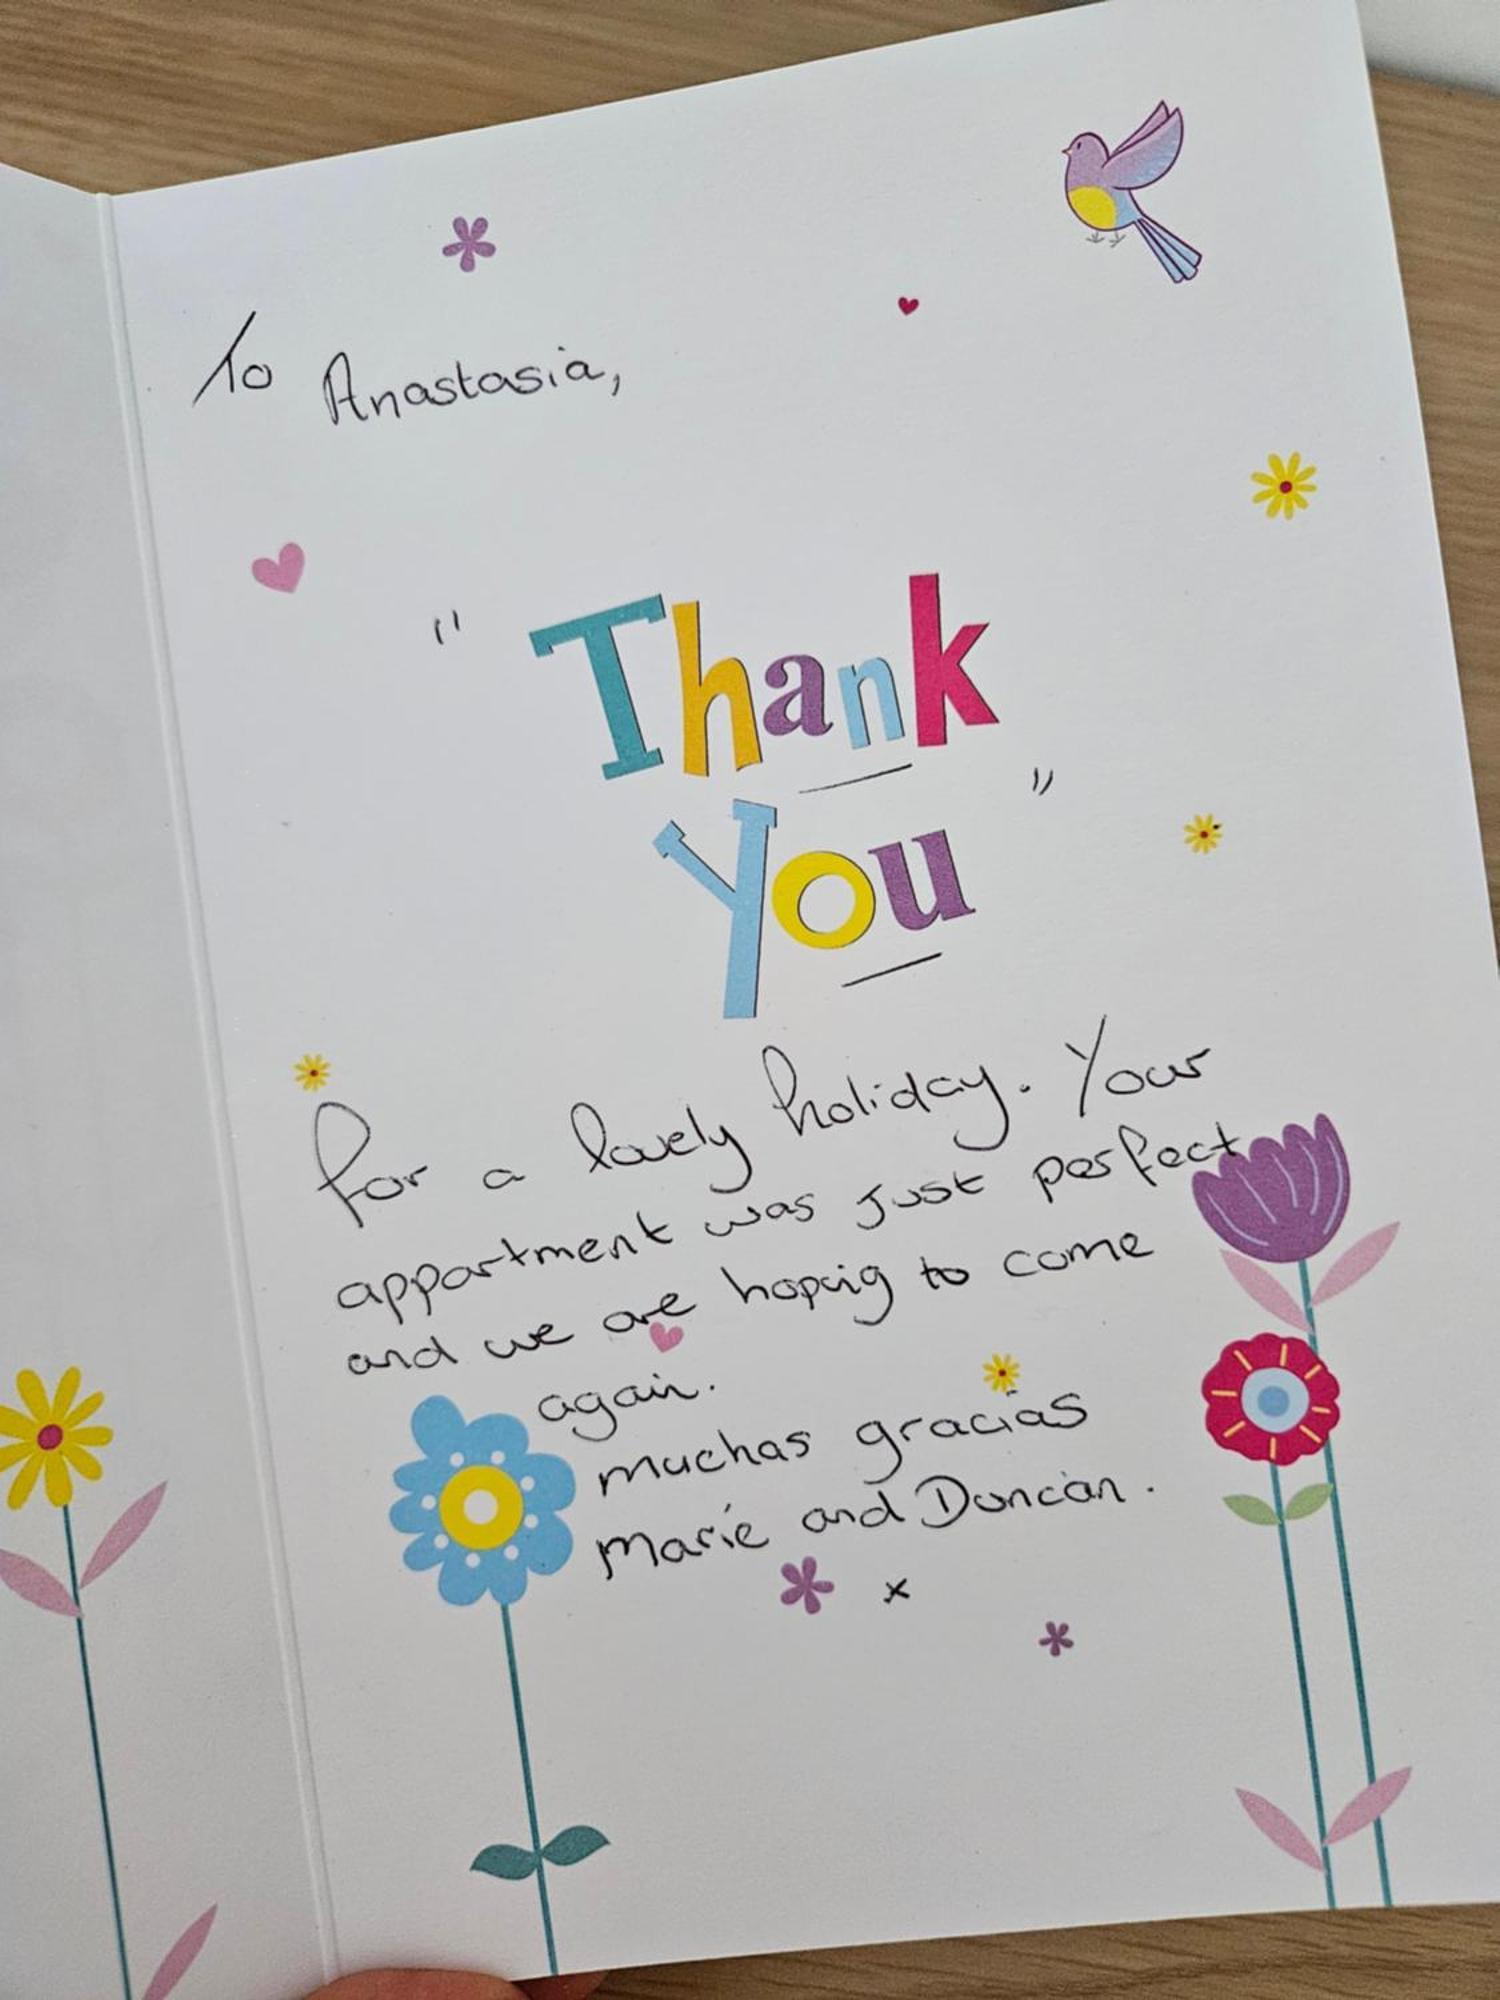 To Anastasia,
" Thank
You "
for a lovely holiday. Your
appartment was just perfect
and we are hoping to come
again.
muchas gracias
Marie and Duncan.
x